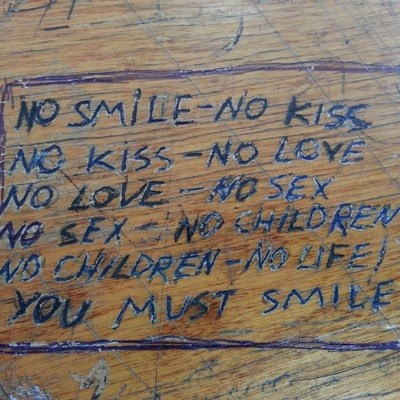 NO SMILE-NO KISS
NO KISS-NO LOVE
NO LOVE-NO SEX
NO SEX-NO CHILDREN
NO CHILDREN-NO LIFE!
YOU MUST SMILE